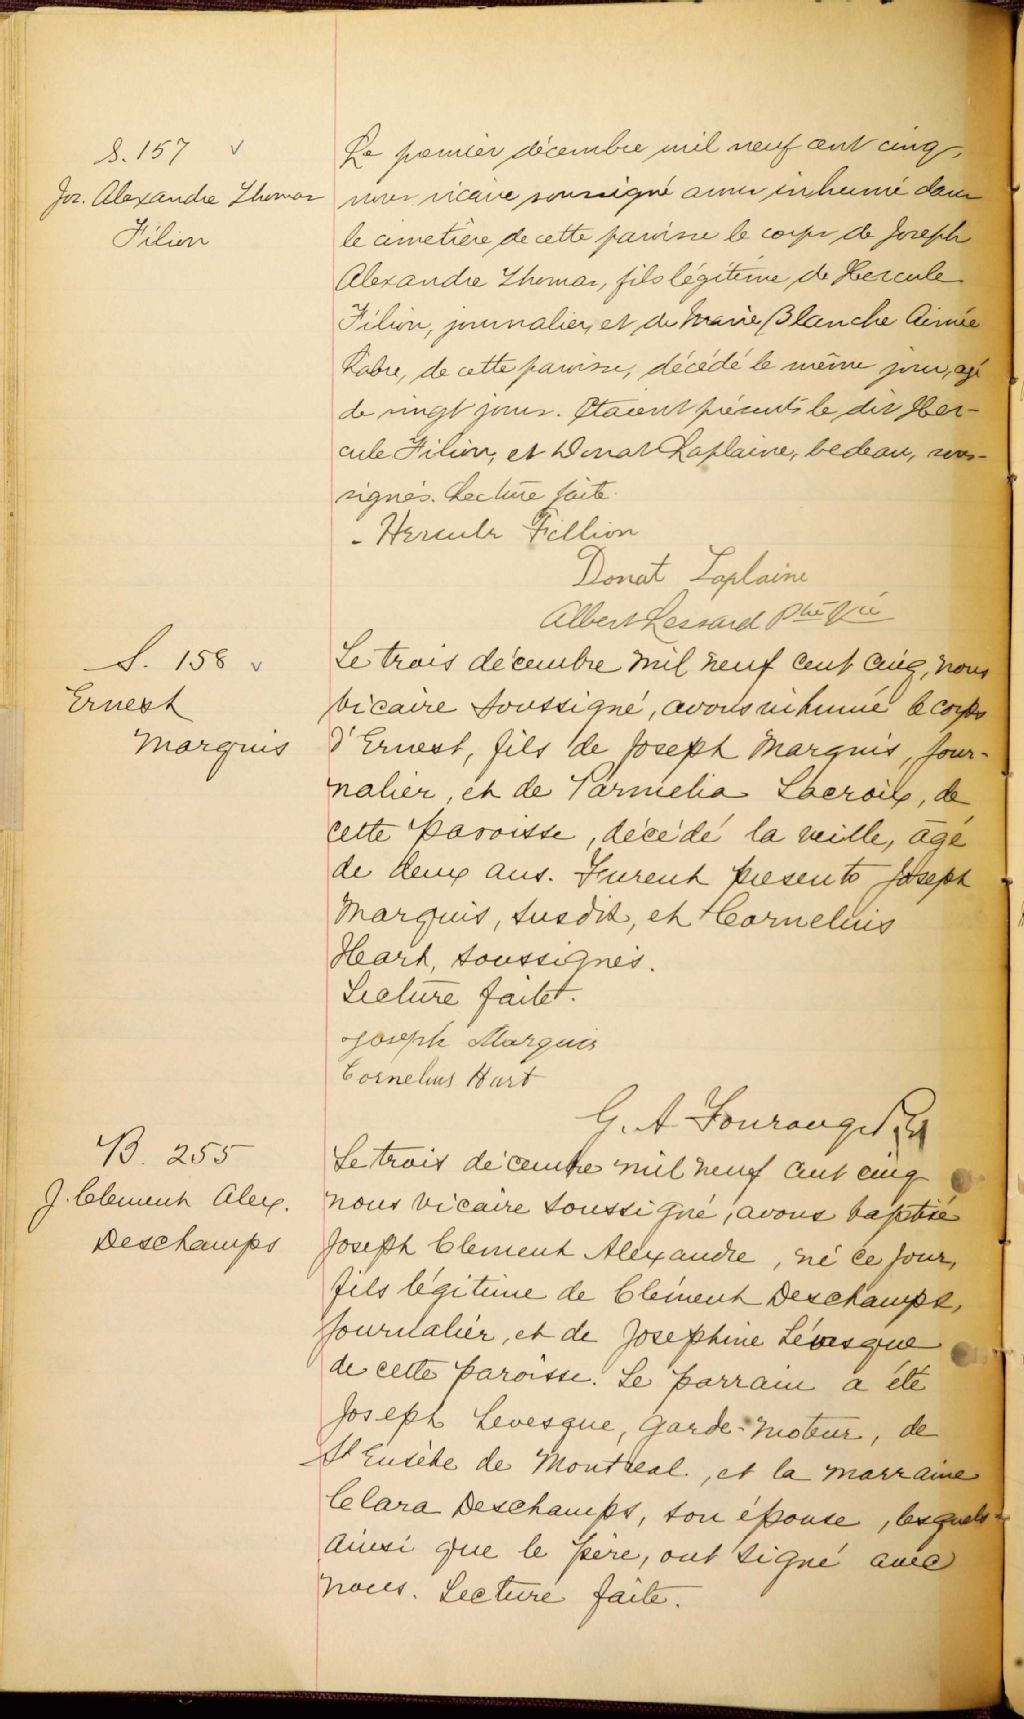 S. 157
Jos. Alexandre Thomas
Filion
Le premier décembre mil neuf cent cinq,
nous vicaire soussigné avons inhumé dans
le cimetière de cette paroisse le corps de Joseph
Alexandre Thomas, fils légitime de Hercule
Filion, journalier, et de Marie Blanche Aimée
Labre, de cette paroisse, décédé le même jour, agé
de vingt jours. Etaient présents le dit Her-
cule Filion, et Donat Laplaine, bedeau, sous-
signés. Lecture faite.
Hercule Fillion
Donat Laplaine
Albert Lessard Ptre Vic
S. 158
Ernest
Marquis
Le trois décembre mil neuf cent cinq, nous
vicaire soussigné, avons inhumé le corps
d'Ernest, fils de Joseph Marquis, jour-
nalier, et de Parmelia Lacroix, de
cette paroisse, décédé la veille, âgé
de deux ans. Furent présents Joseph
Marquis, susdit, et Cornelius
Hart, soussignés.
Lecture faite.
Joseph Marquis
Cornelius Hart
G. A
B. 255
J. Clement Alex.
Deschamps
Le trois décembre mil neuf cent cinq
nous vicaire soussigné, avons baptisé
Joseph Clement Alexandre, né ce jour,
fils légitime de Clément Deschamps,
journalier, et de Josephine Lévesque
de cette paroisse. Le parrain a été
Joseph Levesque, garde-moteur, de
St Eusèbe de Montreal, et la marraine
Clara Deschamps, son épouse, lesquels
ainsi que le père, ont signé avec
nous. Lecture faite.